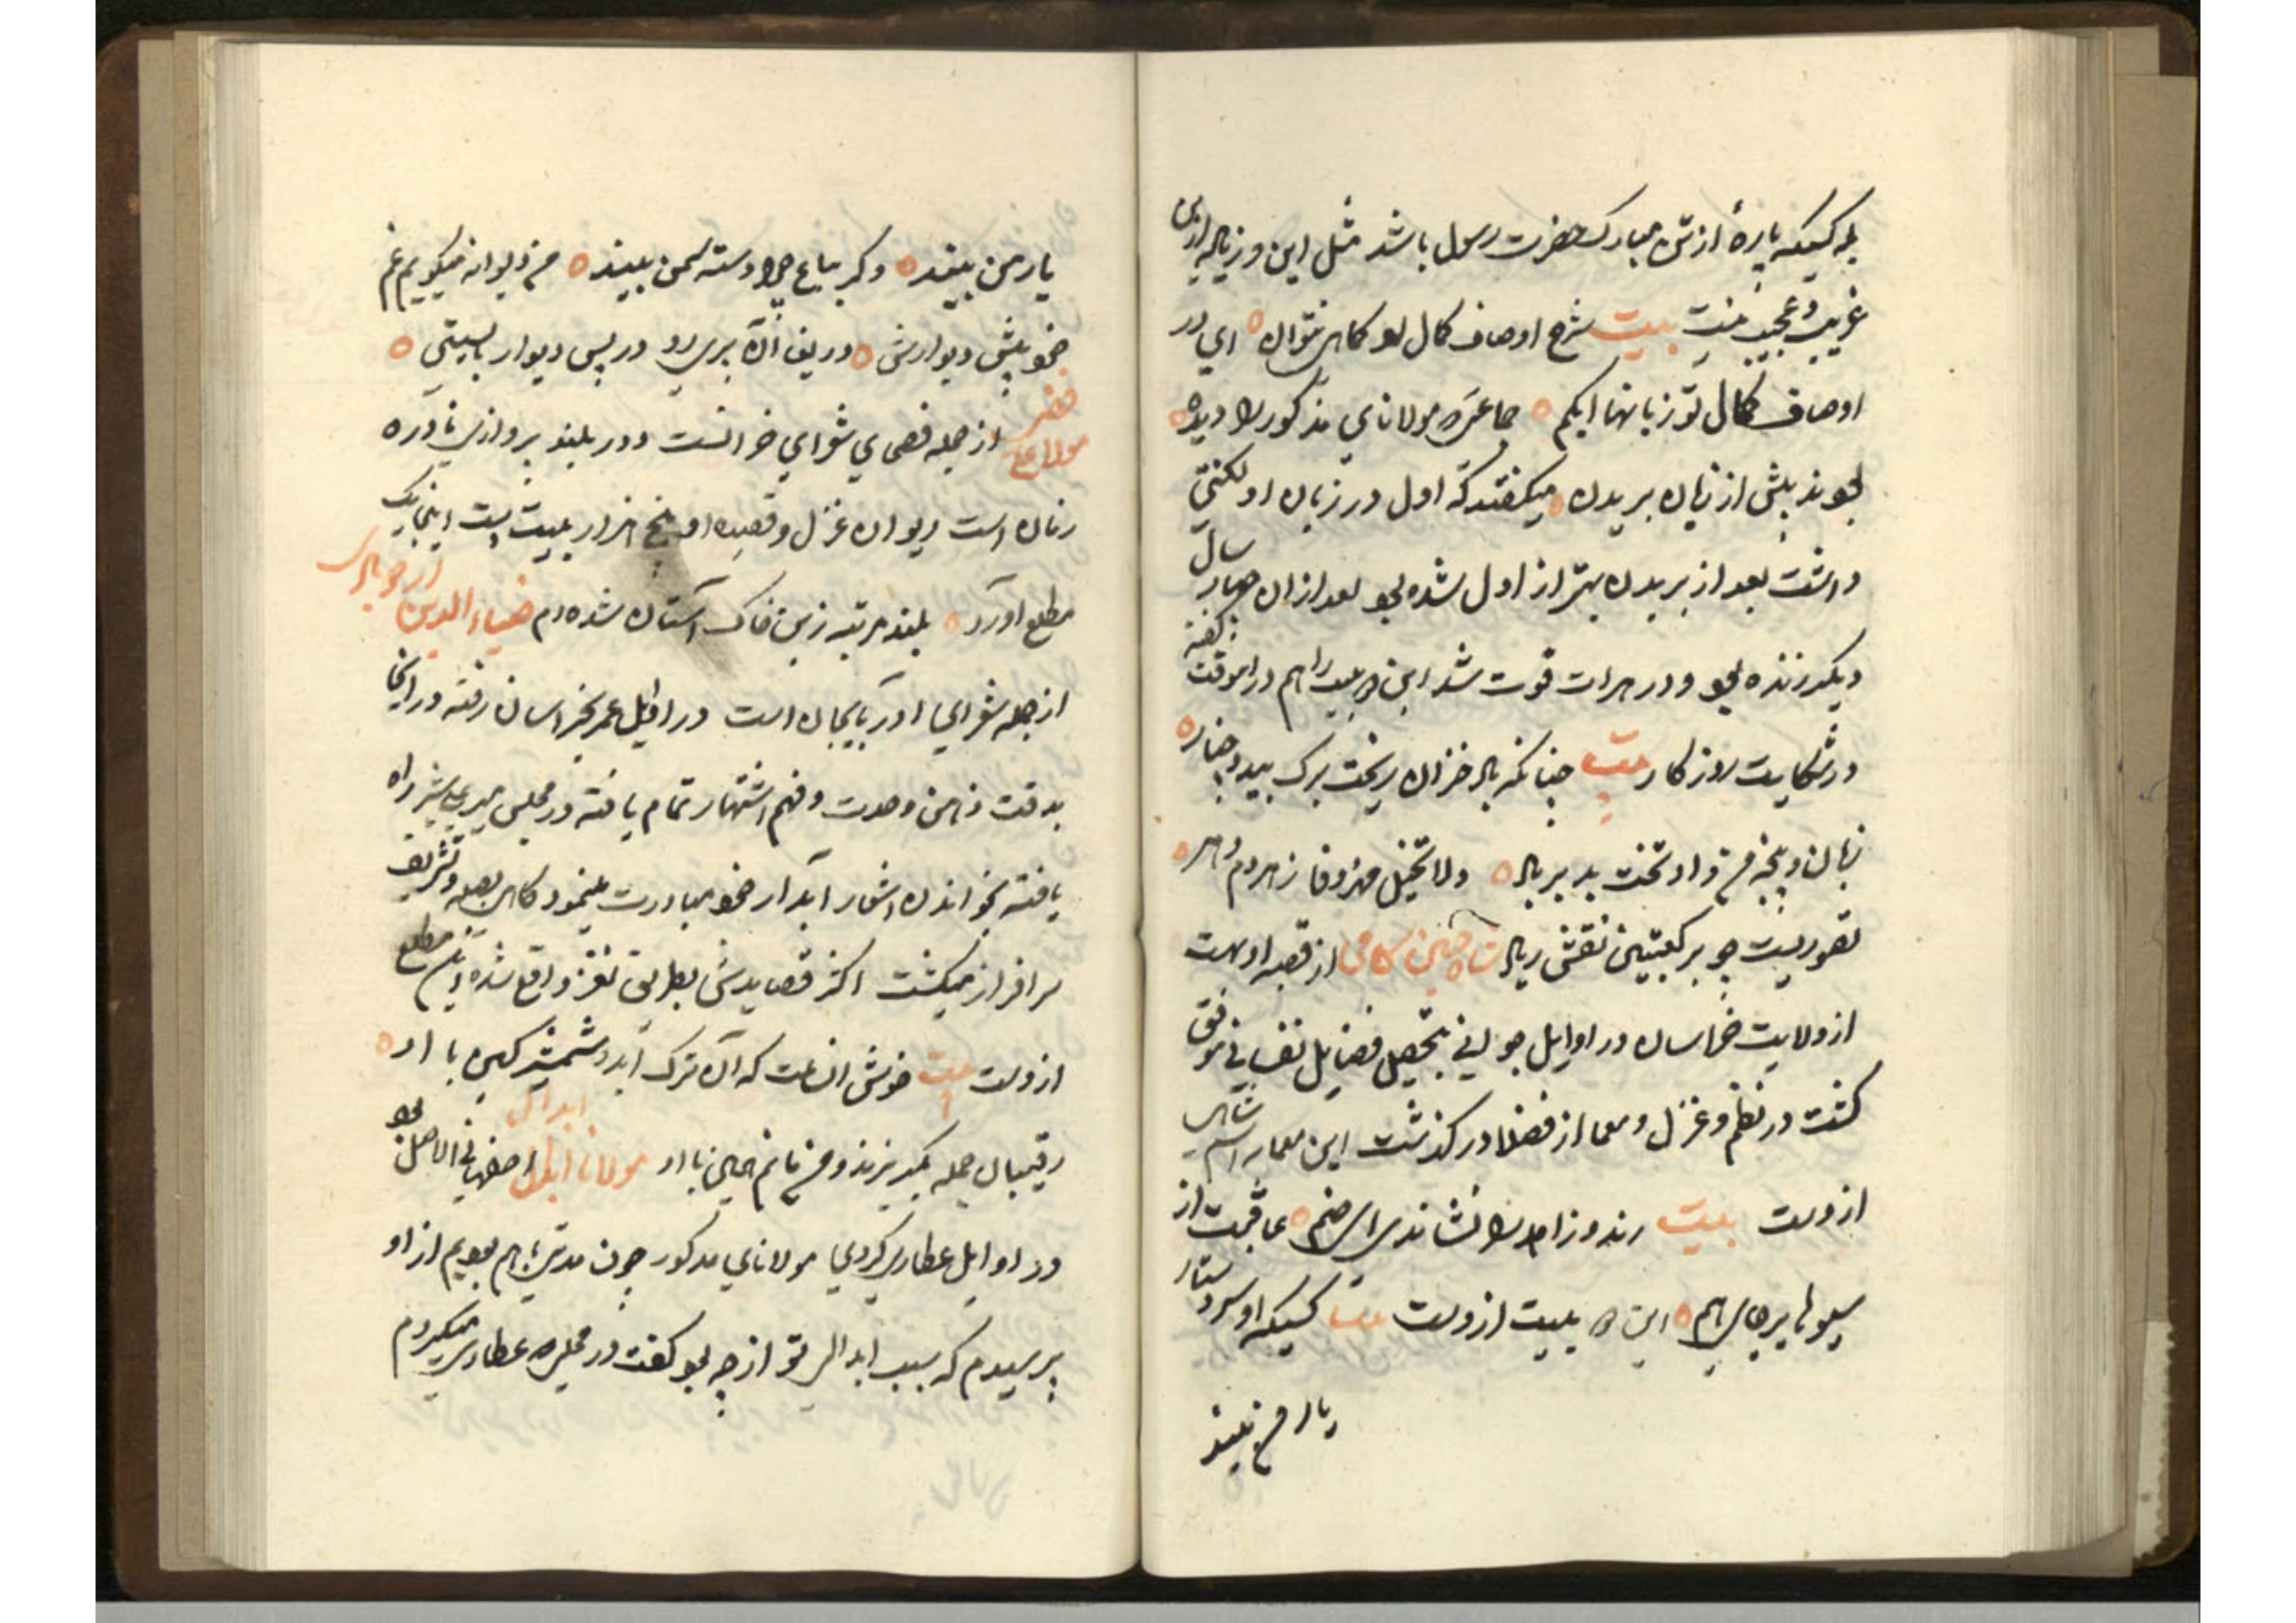 بلکه کسیکه پارهٔ از تن مبارک حضرت رسول باشد مثل این و زیاده ازین
غریب و عجیب نیست بیت شرح اوصاف کمال تو کماهی نتوان ای در
اوصاف کمال تو زبانها ابکم جماعتی که مولانای مذکور را دیده
بودند پیش از زبان بریدن میگفتند که اول در زبان او لکنتی
داشت بعد از بریدن بهتر از اول شده بود بعد از آن چهار سال
دیگر زنده بود و در هرات فوت شد این دو بیت را هم در آنوقت گفته
در شکایت روزکار بیت چنانکه باد خزان ریخت برک بید و چنار
زبان و پنجه من داد تخت بد بر باد دلا تخیل مهر و وفا ز مردم دهر
تصوریست چو بر کعبتین نقش زیاد شاه حسین کامی از قصبه اوبه است
از ولایت خراسان در اوایل جوانی بتحصیل فضایل نفسانی موفق
کشت در نظم و غزل و معما از فضلا در کذشت این معما به اسم شاهی
ازوست بیت رند و زاهد را نشاندی ای صنم عاقبت از
سبوها بر جای هم این دو بیت ازوست بیت کسیکه او سر دستار
یار من بیند
یار من بیند دکر بباغ چرا دسته سمن بیند من دیوانه میکویم غم
خود پیش دیوارش دریغا آن پری رو در پس دیوار بایستی
مولانا از جمله فصحای شعرای خراسانست و در بلند پروازی نادره
زمان است دیوان غزل و قصیده او پنج هزار بیت است اینجا یک
مطلع آورد بلند مرتبه زین خاک آستان شده‌ام ضیاءالدین اردوبادی
از جمله شعرای آذربایجان است در اوایل عمر بخراسان رفته و در آنجا
بدقت ذهن و حدت فهم اشتهار تمام یافته و در مجلس میر علیشیر راه
یافته بخواندن اشعار آبدار خود مبادرت مینمود و کاهی بصله و تشریف
سرافراز میکشت اکثر قصایدش بطریق نغز واقع شده این مطلع
ازوست بیت خوش آنساعت که آن ترک آید و شمشیر کین با او
رقیبان جمله بکریزند و من مانم همین با او مولانا ابدال اصفهانی الاصل بود
در اوایل عطاری کردی مولانای مذکور چون مدتی باهم بودیم از او
پرسیدم که سبب ابدالی تو از چه بود کفت در محلی که عطاری میکردم